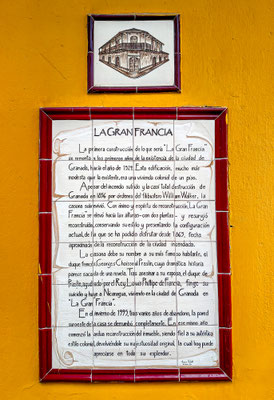 LA GRAN FRANCIA
La primera construcción de lo que sería "La Gran Francia"
se remonta a los primeros años de la existencia de la ciudad de
Granada, hacia el año de 1524. Esta edificación, mucho más
modesta que la existente, era una vivienda colonial de un piso.
A pesar del incendio sufrido y la casi total destrucción de
Granada en 1856 por órdenes del filibustero William Walker, la
casona sobrevivió. Con ánimo y espíritu de reconstrucción, La Gran
Francia se elevó hacia las alturas -con dos plantas- y resurgió
reconstruida, conservando su estilo y presentando la configuración
actual, de la que se ha podido disfrutar desde 1867, fecha
aproximada de la reconstrucción de la ciudad incendiada.
La casona debe su nombre a su más famoso habitante, el
duque francés Georges Choiseul Praslin, cuya dramática historia
parece sacada de una novela. Tras asesinar a su esposa, el duque de
Praslin, ayudado por el Rey Louis Philippe de Francia, finge su
suicidio y huye a Nicaragua, viviendo en la ciudad de Granada en
"La Gran Francia".
En el invierno de 1999, tras varios años de abandono, la pared
suroeste de la casa se derrumbó completamente. En ese mismo año
comenzó la ardua reconstrucción del inmueble, siendo fiel a su auténtico
estilo colonial, devolviéndole su majestuosidad original, la cual hoy puede
apreciarse en todo su esplendor.